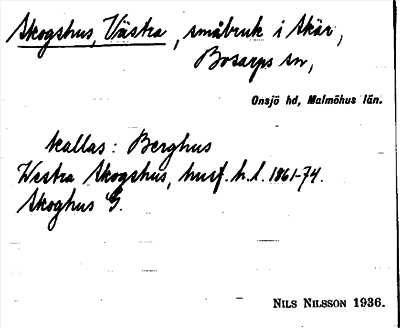 Skogshus, Västra, småbruk i Skår,
Bosarps sn,
Onsjö hd, Malmöhus län.
kallas: Berghus
Westra Skogshus, husf. h. l. 1861-74.
Skoghus G.
NILS NILSSON 1936.